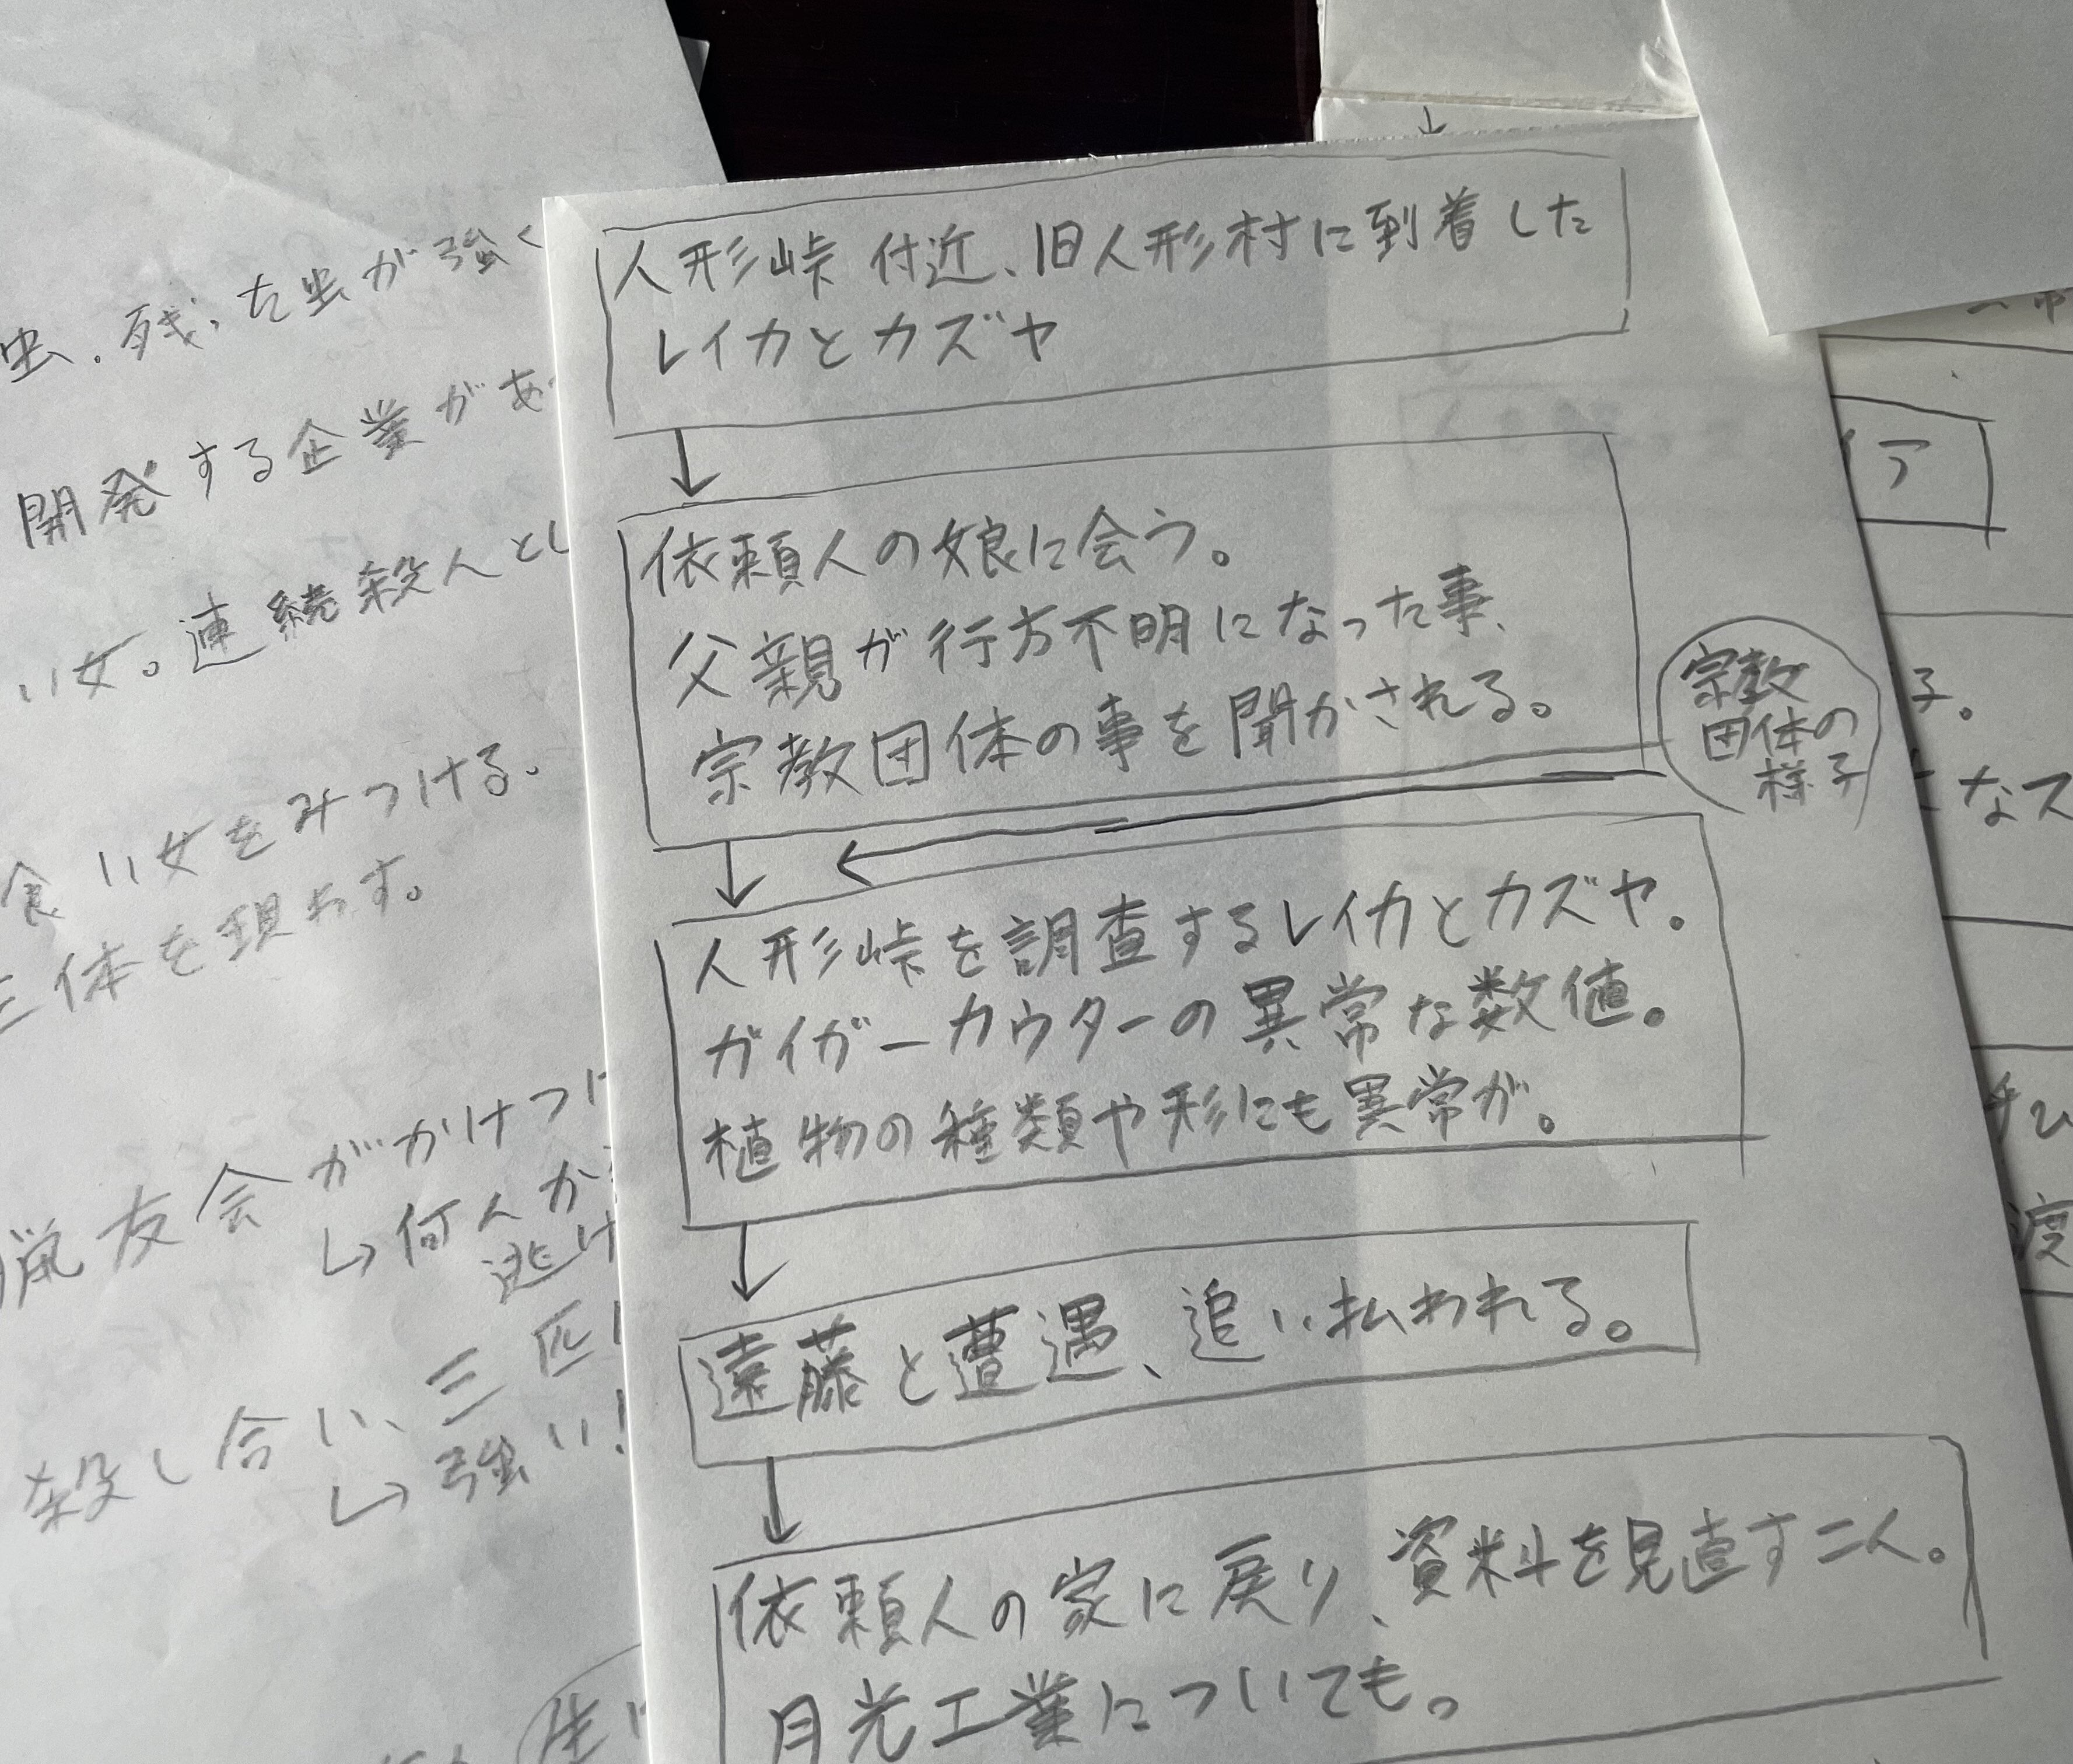 人形峠付近、旧人形村に到着した
レイカとカズヤ
依頼人の娘に会う。
父親が行方不明になった事、
宗教団体の事を聞かされる。
宗教
団体の
様子
人形峠を調査するレイカとカズヤ。
ガイガーカウターの異常な数値。
植物の種類や形にも異常が。
遠藤と遭遇、追い払われる。
依頼人の家に戻り、資料を見直す二人。
月光工業についても。
虫.残った虫が強く
開発する企業があ
い女。連続殺人とし
食い女をみつける。
三体を現わす。
猟友会がかけつけ
↳何人か
逃げ
殺し合い、三匹
↳強い!
イア
子。
なス
渡